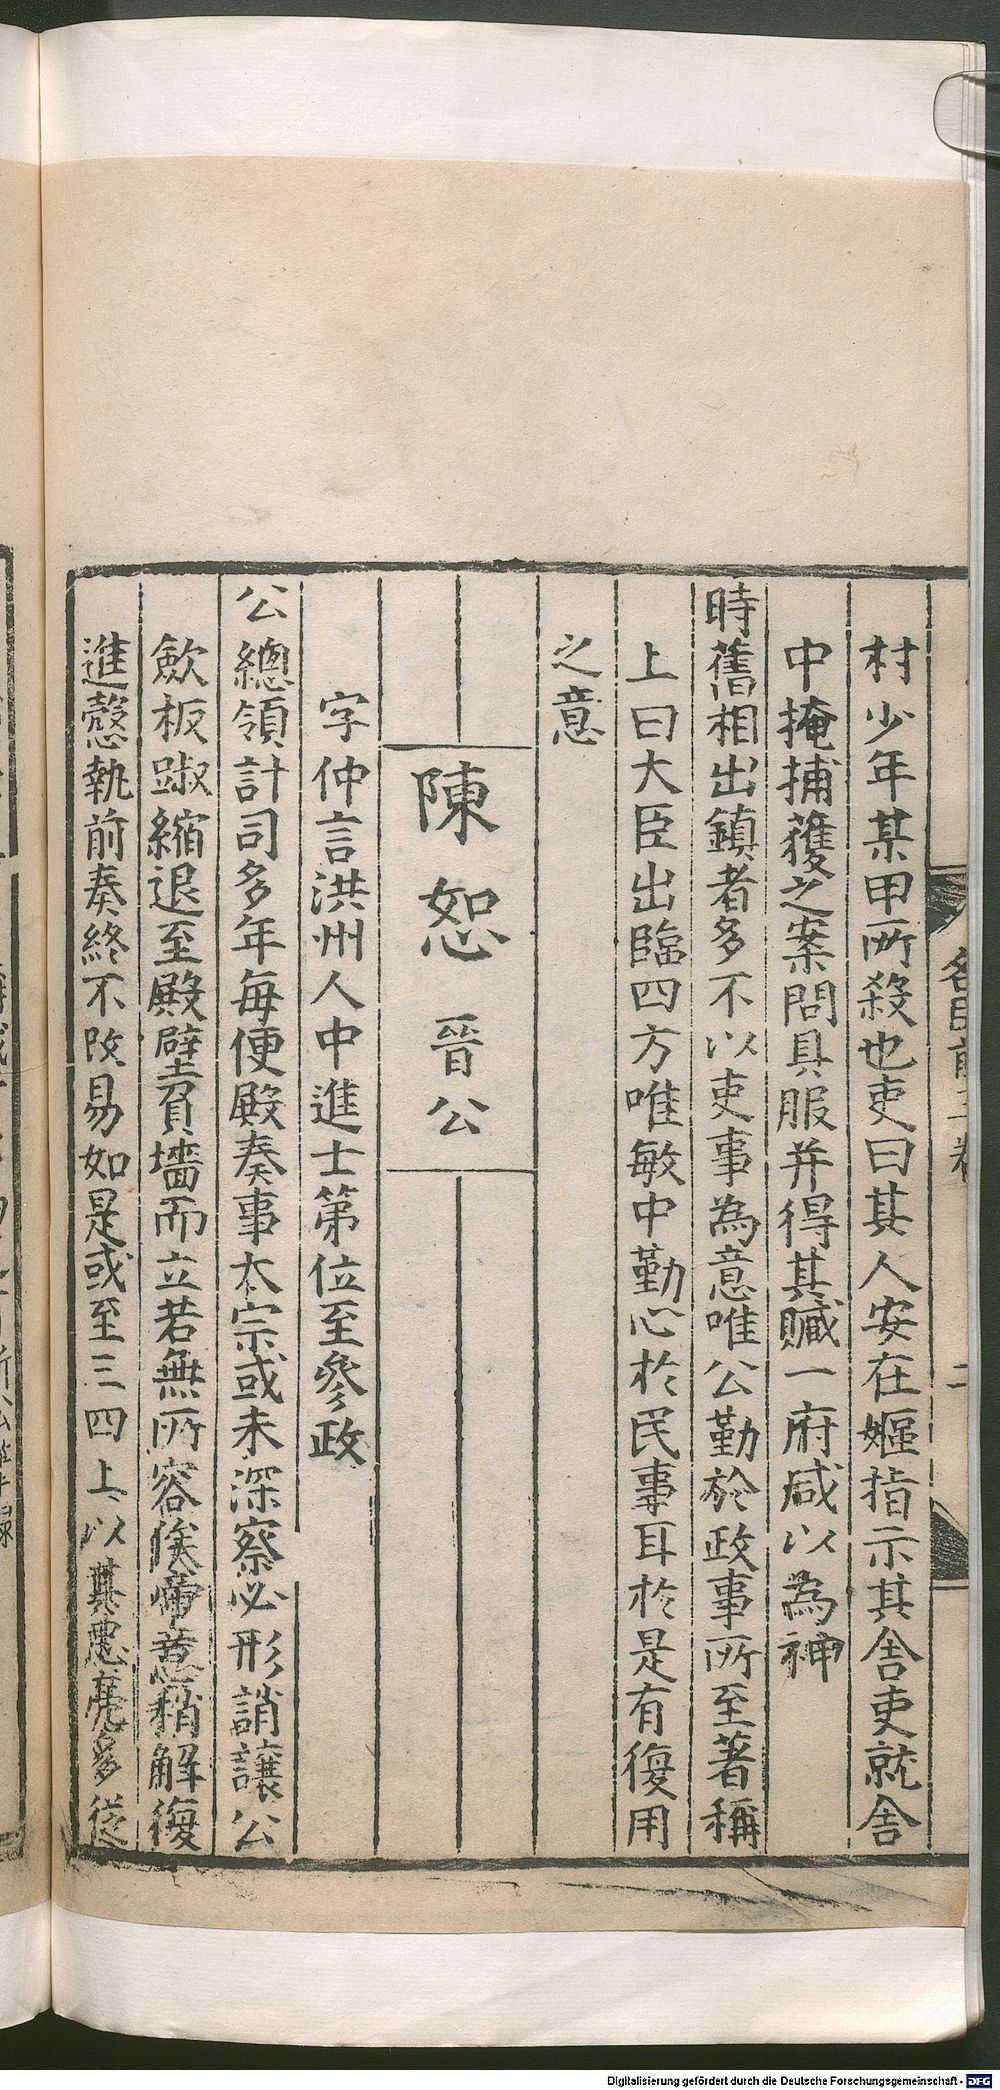 村少年某甲所殺也吏曰其人安在嫗指示其舍吏就舍
中掩捕獲之案問具服并得其贓一府咸以為神
時舊相出鎮者多不以吏事為意唯公勤於政事所至著稱
上曰大臣出臨四方唯敏中勤心於民事耳於是有復用
之意
陳恕 晉公
字仲言洪州人中進士第位至參政
公總領計司多年每便殿奏事太宗或未深察必形誚讓公
歛板踧縮退至殿壁負墻而立若無所容俟帝意稍解復
進慤執前奏終不改易如是或至三四上以其忠亮多從
Digitalisierung gefördert durch die Deutsche Forschungsgemeinschaft - DFG